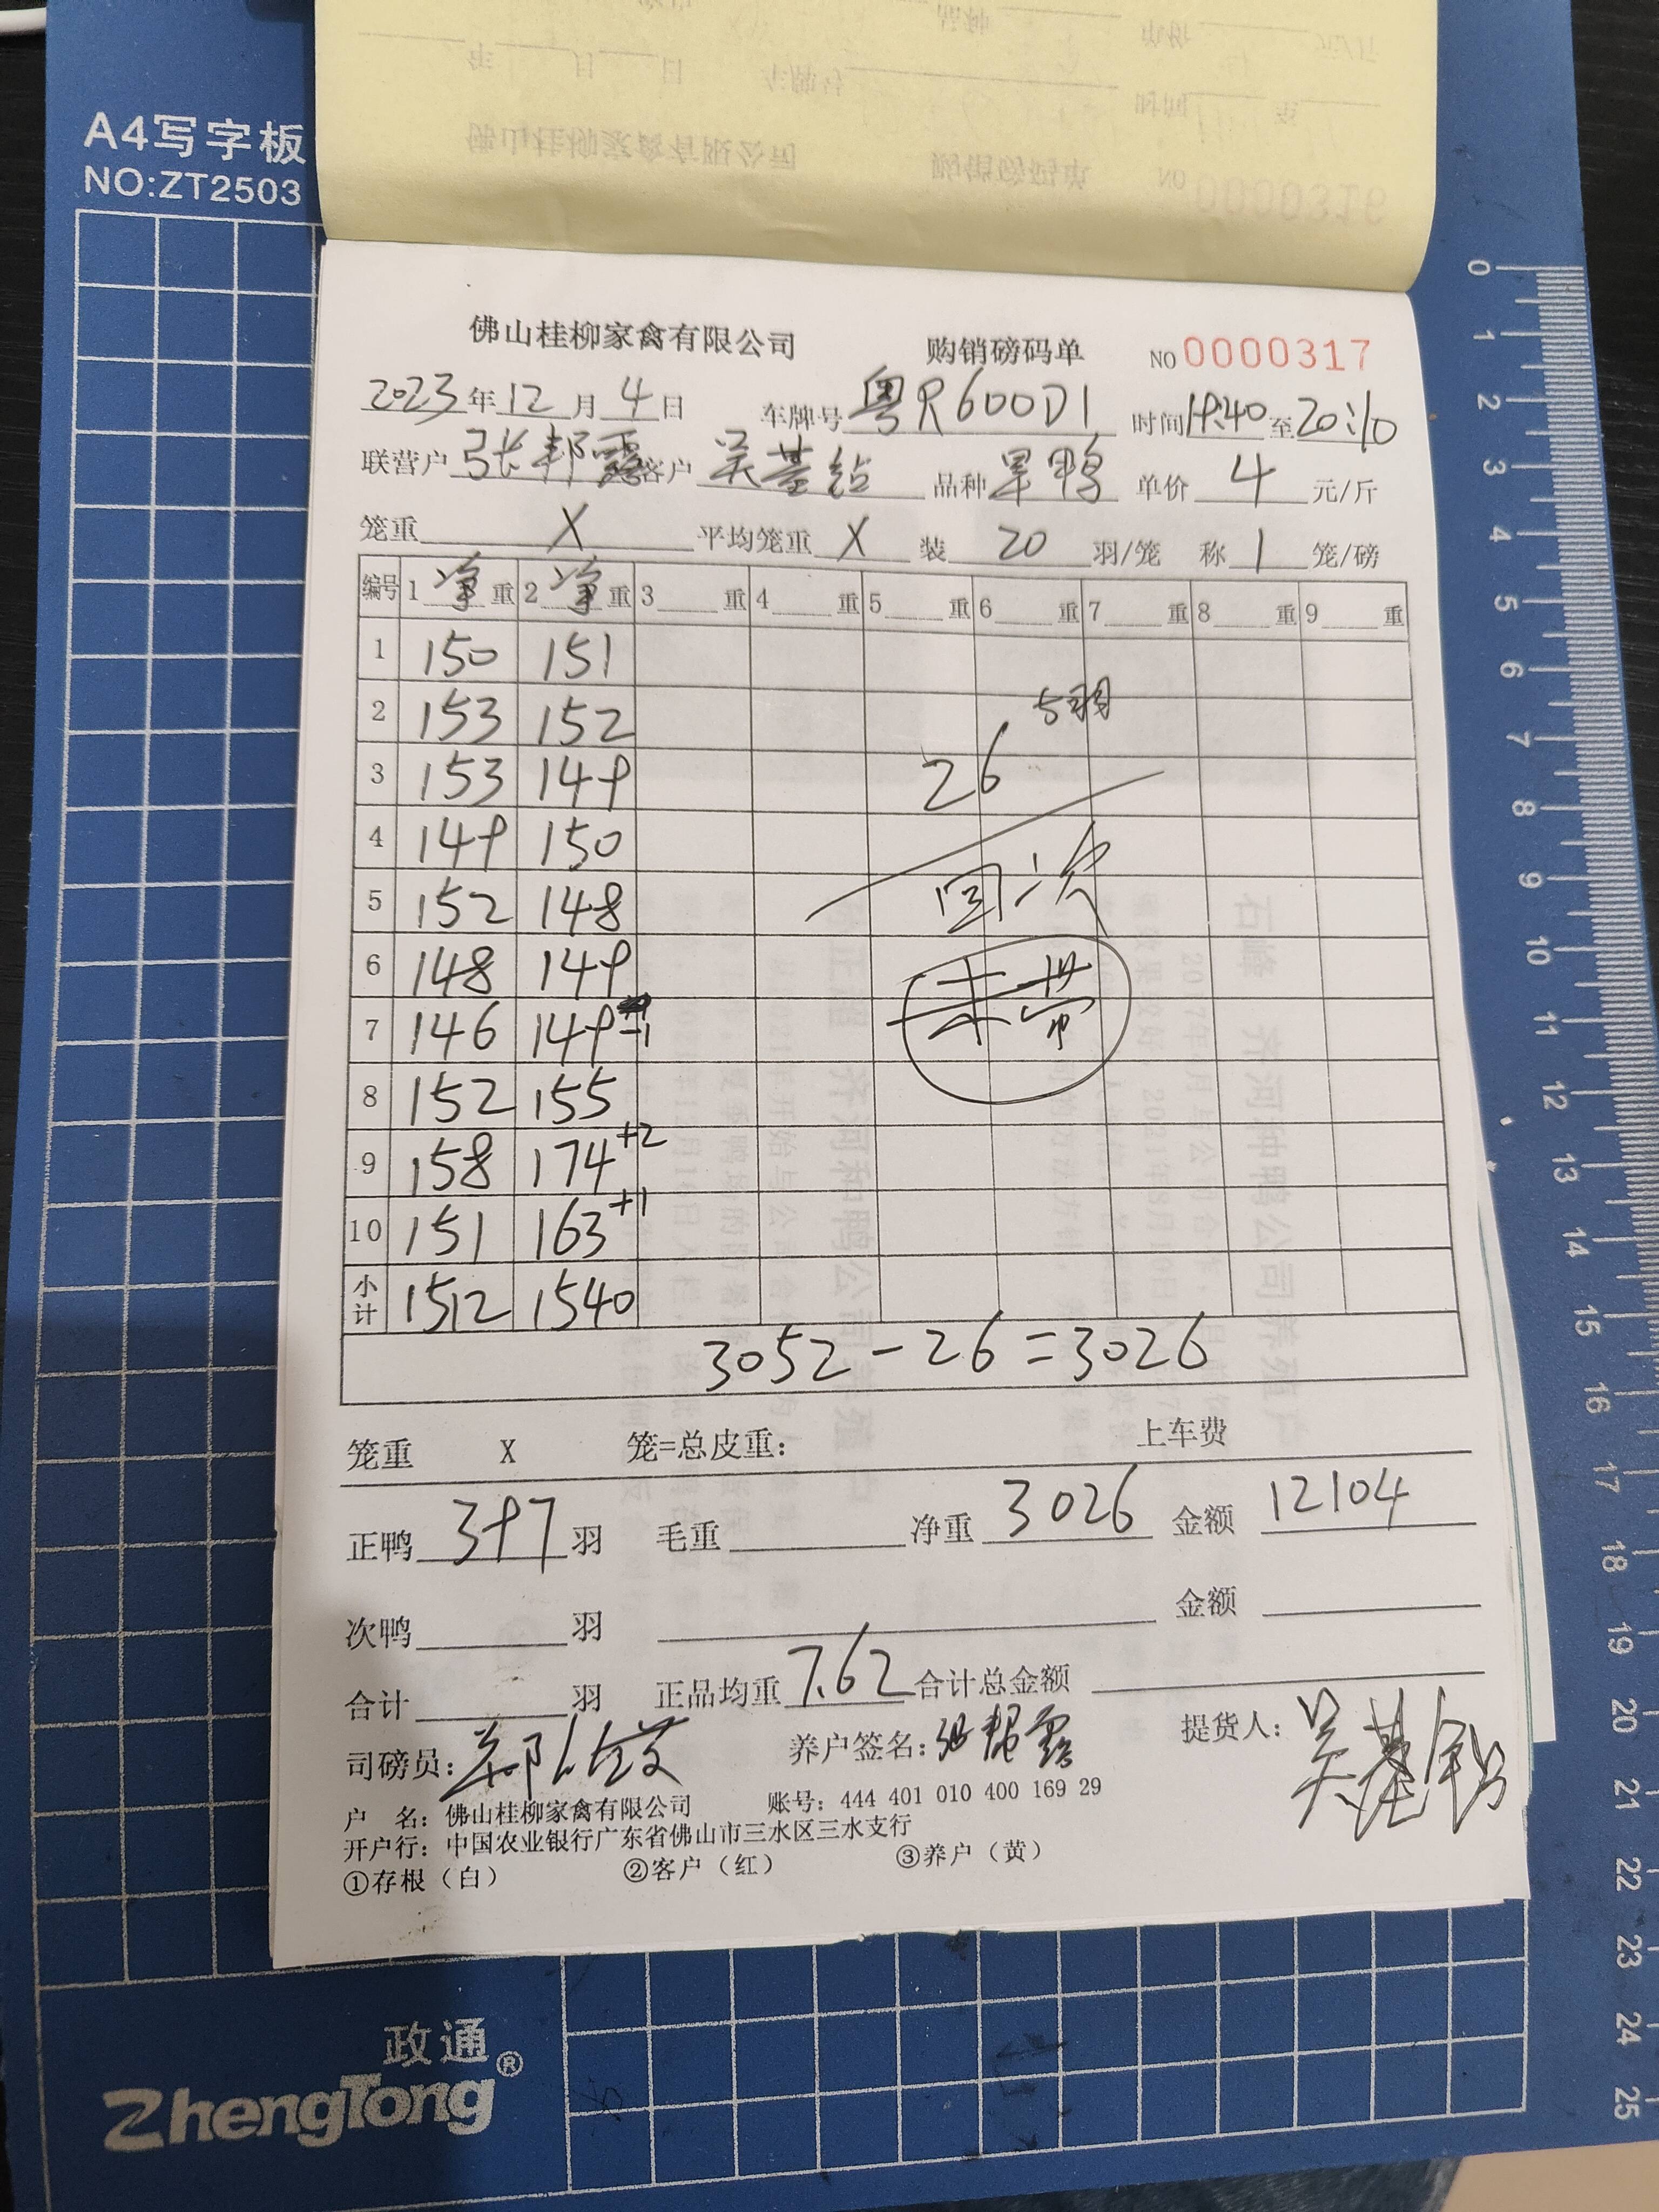 A4写字板
NO:ZT2503
佛山桂柳家禽有限公司 购销磅码单 NO 0000317
2023年12月4日 车牌号 粤R600D1 时间19:40至20:10
联营户 张邦露 客户 吴基钻 品种 旱鸭 单价 4 元/斤
笼重 X 平均笼重 X 装 20 羽/笼 称 1 笼/磅
编号 1 净 重 2 净 重 3 重 4 重 5 重 6 重 7 重 8 重 9 重
1 150 151
2 153 152
5羽
3 153 149
26
4 149 150
5 152 148
回次
6 148 149
未带
7 146 149 -1
8 152 155
9 158 174 +2
10 151 163 +1
小计 1512 1540
3052-26=3026
笼重 X 笼=总皮重: 上车费
正鸭 397 羽 毛重 净重 3026 金额 12104
次鸭 羽 金额
合计 羽 正品均重 7.62 合计总金额
司磅员: 养户签名: 提货人: 吴基钻
户 名: 佛山桂柳家禽有限公司 账号: 444 401 010 400 169 29
开户行: 中国农业银行广东省佛山市三水区三水支行
①存根（白） ②客户（红） ③养户（黄）
政通®
ZhengTong
0
1
2
3
4
5
6
7
8
9
10
11
12
13
14
15
16
17
18
19
20
21
22
23
24
25